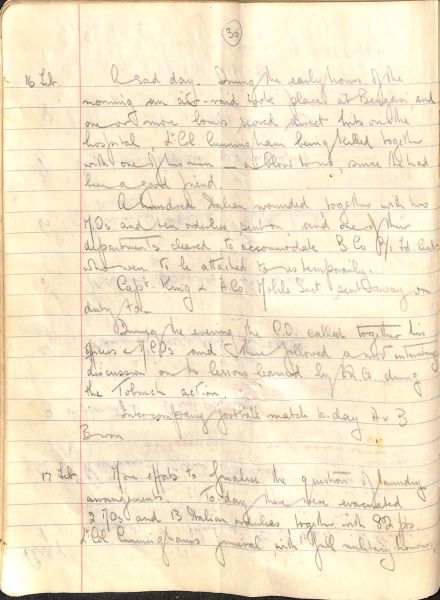 30
16 Feb A sad day. During the early hours of the
morning an air-raid took place at Bengasi and
one or more bombs scored direct hits on the
hospital, Lt Col Cunningham being killed together
with one of his men — a blow to us, since he had
been a good friend.
A hundred Italian wounded together with two
M.Os and ten orderlies sent on, and one of their
departments cleared to accommodate B Co Fd Amb
who were to be attached to us temporarily.
Capt. King & A Co Mobile Sect. sent away on
duty
During the evening the C.O. called together his
officers & N.C.Os and there followed a most interesting
discussion on the lessons learned by during
the Tobruch action.
Intercompany football match to-day A v B
B won
17 Feb More efforts to finalise the question of laundry
arrangements. To-day there were evacuated
2 MOs and 13 Italian orderlies together with 82 pts.
Lt Col Cunningham's funeral with full military honours.